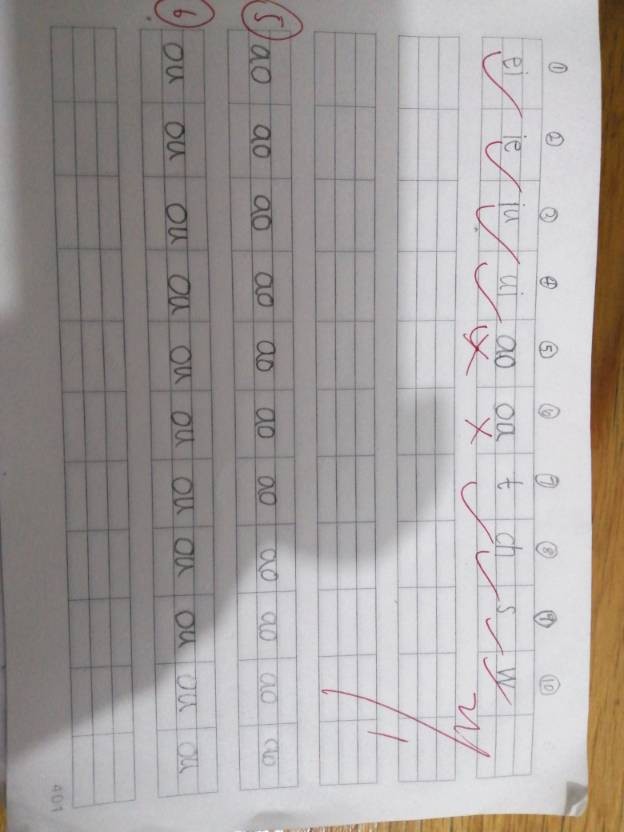 ① ② ③ ④ ⑤ ⑥ ⑦ ⑧ ⑨ ⑩
ei ie iu ui ao ou t ch s w
⑤ ao ao ao ao ao ao ao ao ao ao ao
⑥ ou ou ou ou ou ou ou ou ou ou ou
401